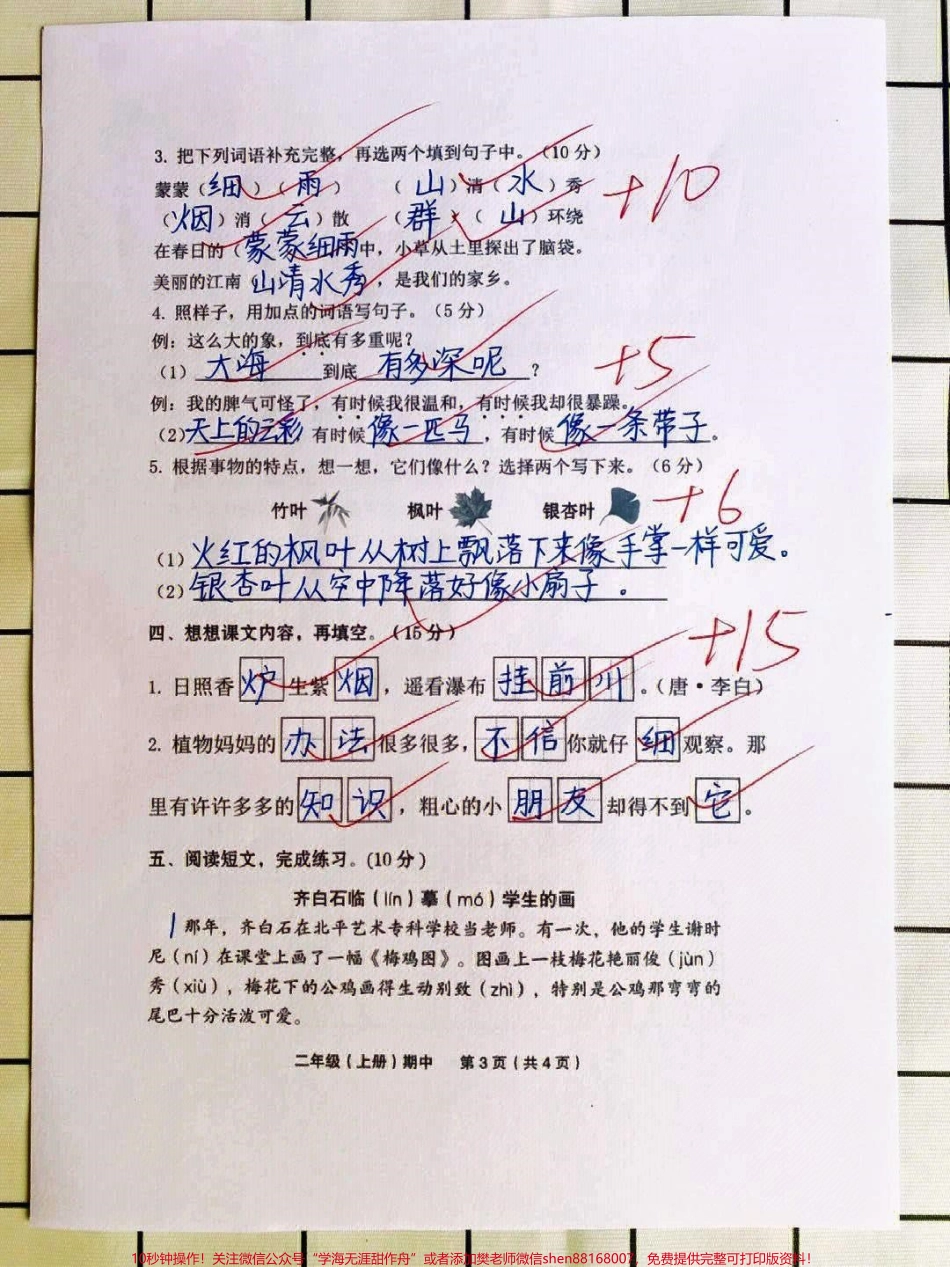 3. 把下列词语补充完整，再选两个填到句子中。（10分）
+10
蒙蒙（细）（雨） （山）清（水）秀
（烟）消（云）散 （群）（山）环绕
在春日的（蒙蒙细雨中，小草从土里探出了脑袋。
美丽的江南 山清水秀，是我们的家乡。
4. 照样子，用加点的词语写句子。（5分）
例：这么大的象，到底有多重呢？
（1）大海到底 有多深呢？
+5
例：我的脾气可怪了，有时候我很温和，有时候我却很暴躁。
（2）天上的云彩 有时候像一匹马，有时候像一条带子。
5. 根据事物的特点，想一想，它们像什么？选择两个写下来。（6分）
+6
竹叶 枫叶 银杏叶
（1）火红的枫叶从树上飘落下来像手掌一样可爱。
（2）银杏叶从空中降落好像小扇子。
四、想想课文内容，再填空。（15分）
+15
1. 日照香炉生紫烟，遥看瀑布挂前川。（唐·李白）
2. 植物妈妈的办法很多很多，不信你就仔细观察。那
里有许许多多的知识，粗心的小朋友却得不到它。
五、阅读短文，完成练习。(10分)
齐白石临（lín）摹（mó）学生的画
1 那年，齐白石在北平艺术专科学校当老师。有一次，他的学生谢时
尼（ní）在课堂上画了一幅《梅鸡图》。图画上一枝梅花艳丽俊（jùn）
秀（xiù），梅花下的公鸡画得生动别致（zhì），特别是公鸡那弯弯的
尾巴十分活泼可爱。
二年级（上册）期中 第3页（共4页）
10秒钟操作！关注微信公众号“学海无涯甜作舟”或者添加樊老师微信shen88168007，免费提供完整可打印版资料！